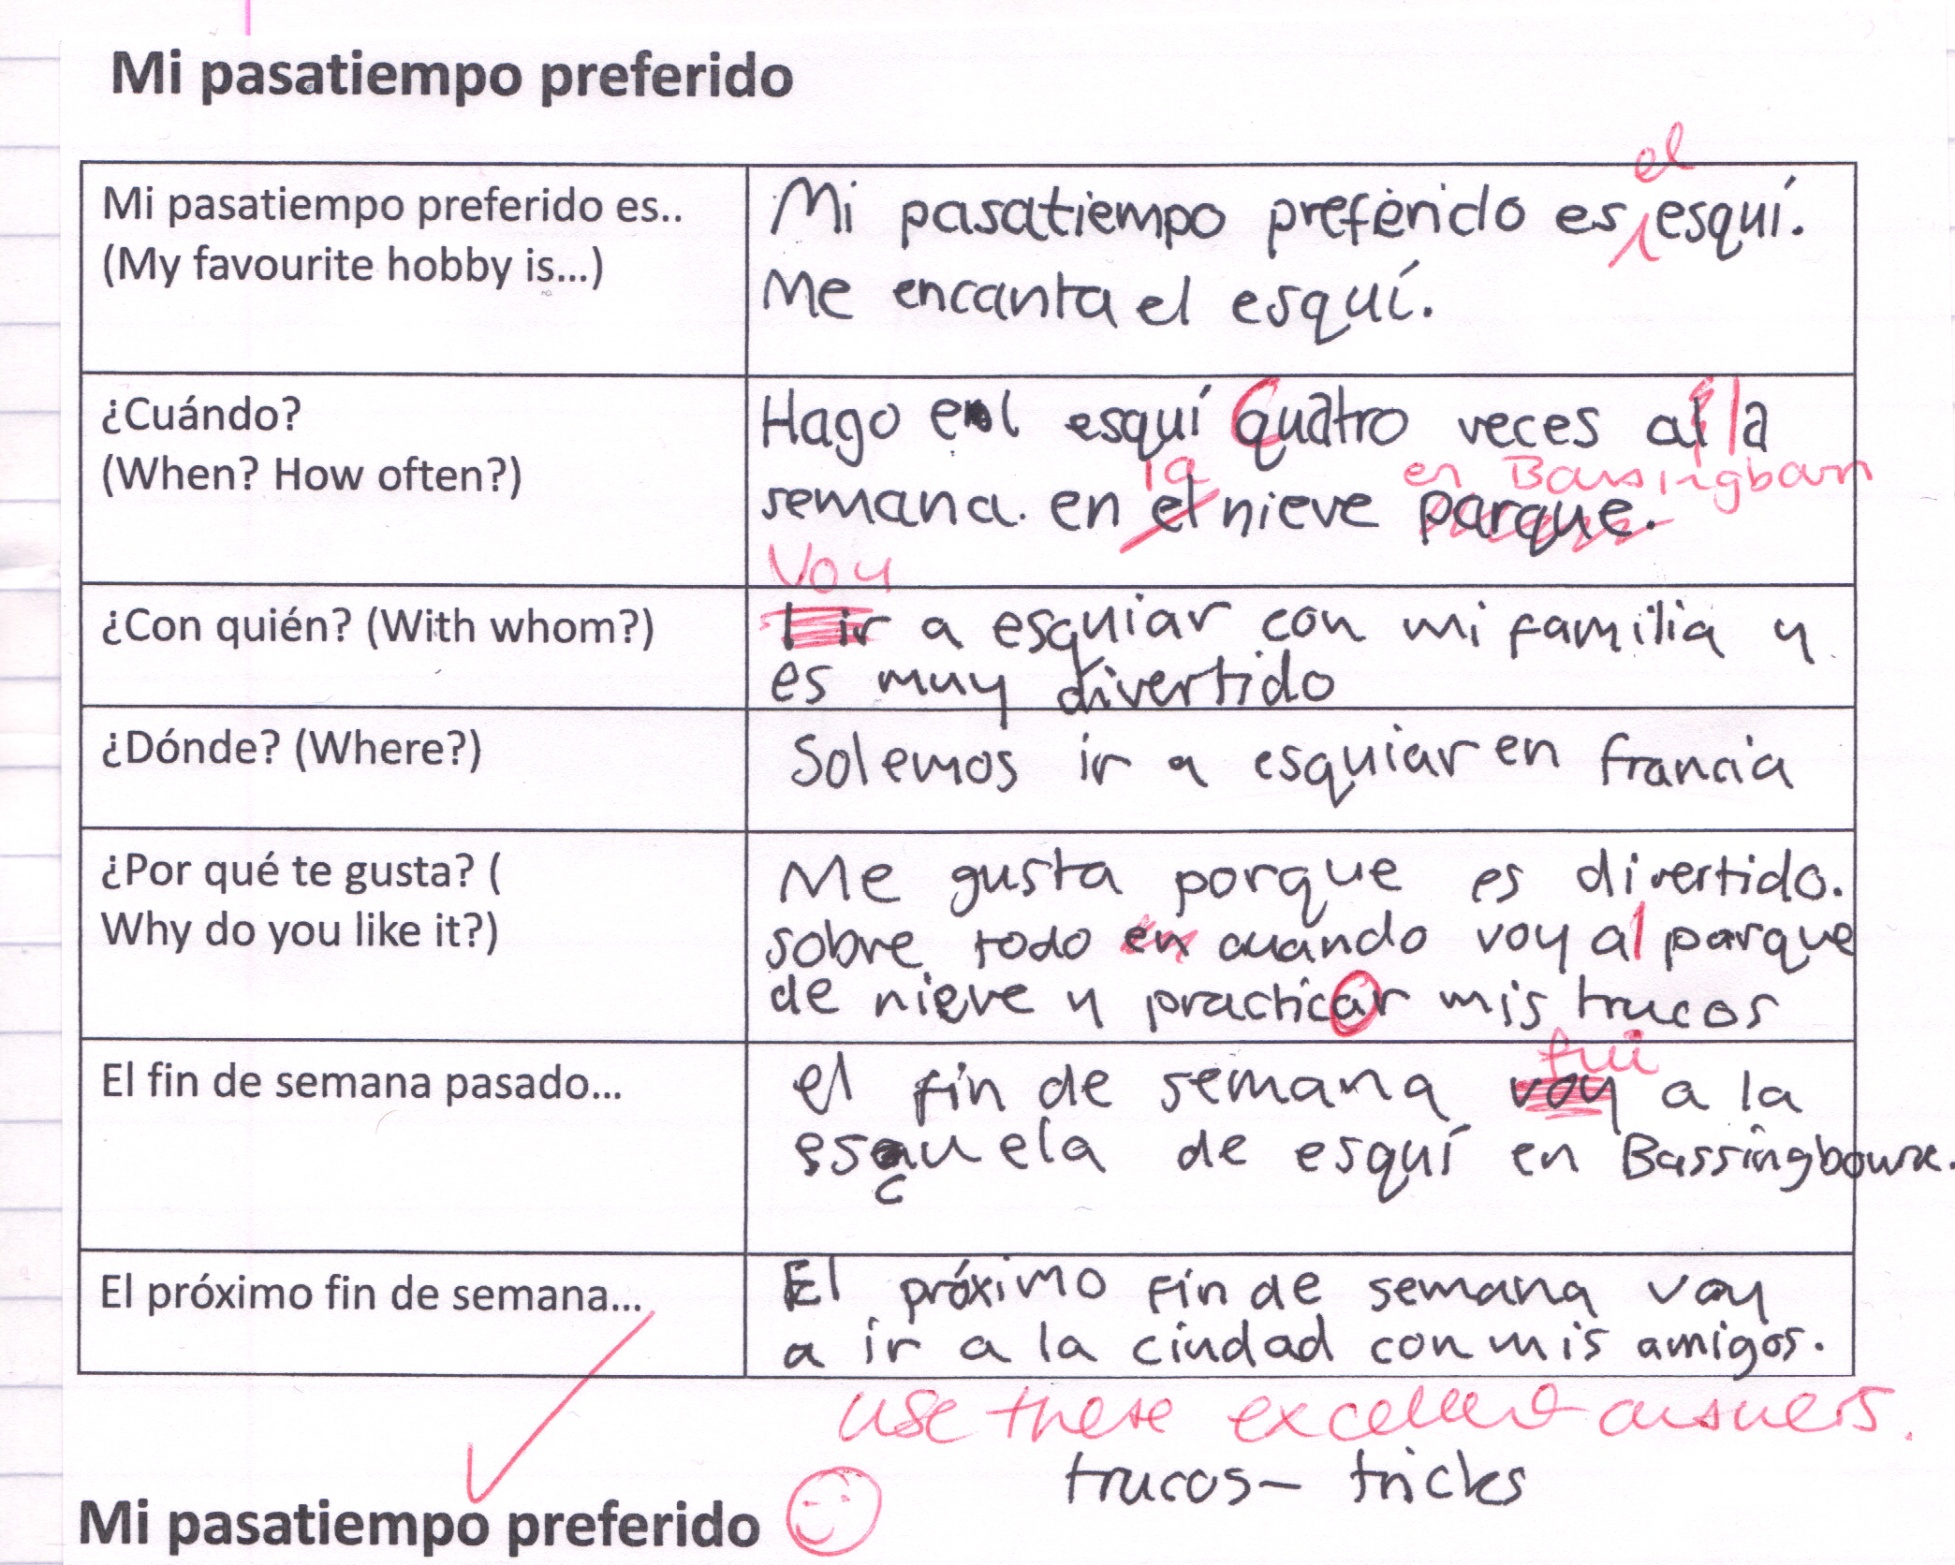 Mi pasatiempo preferido
Mi pasatiempo preferido es..
(My favourite hobby is...)
el
Mi pasatiempo preferido es esquí.
Me encanta el esquí.
¿Cuándo?
(When? How often?)
Hago el esquí Cuatro veces a la
la en Bassingbourn
semana. en el nieve parque.
¿Con quién? (With whom?)
Voy
ir a esquiar con mi familia y
es muy divertido
¿Dónde? (Where?)
Solemos ir a esquiar en francia
¿Por qué te gusta? (
Why do you like it?)
Me gusta porque es divertido.
sobre todo en cuando voy al parque
de nieve y practicar mis trucos
El fin de semana pasado...
fui
el fin de semana voy a la
escuela de esquí en Bassingbourne.
El próximo fin de semana...
El próximo fin de semana voy
a ir a la ciudad con mis amigos.
use these excellent answers.
trucos- tricks
Mi pasatiempo preferido